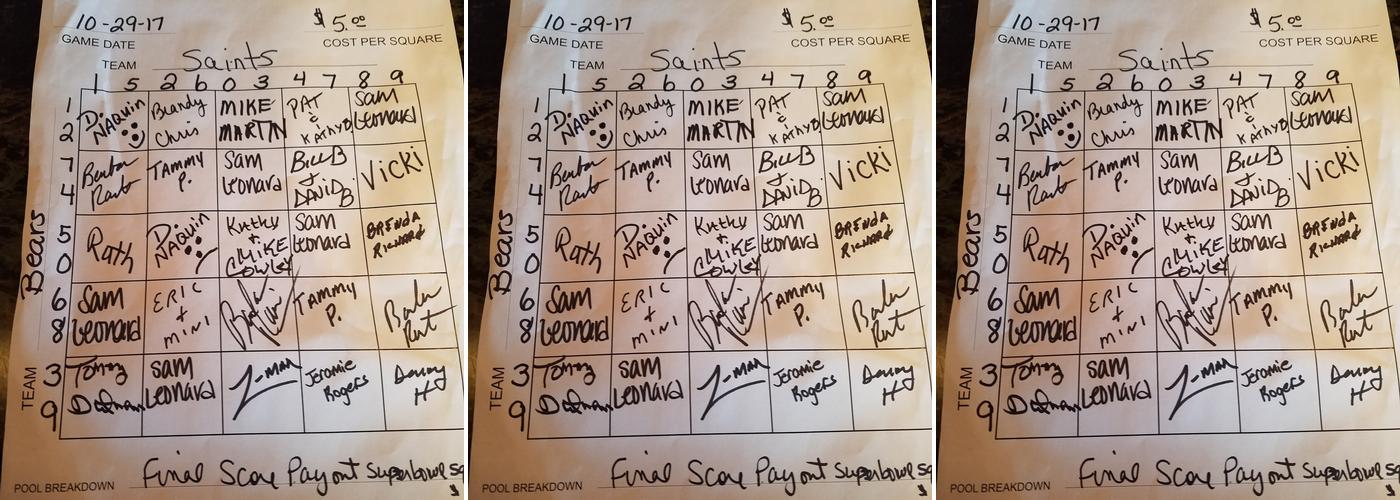 10-29-17 $5.00
GAME DATE COST PER SQUARE
TEAM Saints
1 5 2 6 0 3 4 7 8 9
1 2 D. NAQUIN Brandy Chris MIKE MARTIN PAT & KATHY D Sam Leonard
7 4 TAMMY P. Sam Leonard Bill B + DAVID B Vicki
Bears
5 0 Rath D. NAQUIN Kathy + MIKE Cowley Sam Leonard BRENDA RICHARD
6 8 Sam Leonard ERIC + MINI TAMMY P.
TEAM
3 9 Tommy Sam Leonard Z-MAN Jeromie Rogers Danny H
POOL BREAKDOWN Final Score Payout Superbowl Sq
$
10-29-17 $5.00
GAME DATE COST PER SQUARE
TEAM Saints
1 5 2 6 0 3 4 7 8 9
1 2 D. NAQUIN Brandy Chris MIKE MARTIN PAT & KATHY D Sam Leonard
7 4 TAMMY P. Sam Leonard Bill B + DAVID B Vicki
Bears
5 0 Rath D. NAQUIN Kathy + MIKE Cowley Sam Leonard BRENDA RICHARD
6 8 Sam Leonard ERIC + MINI TAMMY P.
TEAM
3 9 Tommy Sam Leonard Z-MAN Jeromie Rogers Danny H
POOL BREAKDOWN Final Score Payout Superbowl Sq
$
10-29-17 $5.00
GAME DATE COST PER SQUARE
TEAM Saints
1 5 2 6 0 3 4 7 8 9
1 2 D. NAQUIN Brandy Chris MIKE MARTIN PAT & KATHY D Sam Leonard
7 4 TAMMY P. Sam Leonard Bill B + DAVID B Vicki
Bears
5 0 Rath D. NAQUIN Kathy + MIKE Cowley Sam Leonard BRENDA RICHARD
6 8 Sam Leonard ERIC + MINI TAMMY P.
TEAM
3 9 Tommy Sam Leonard Z-MAN Jeromie Rogers Danny H
POOL BREAKDOWN Final Score Payout Superbowl Sq
$